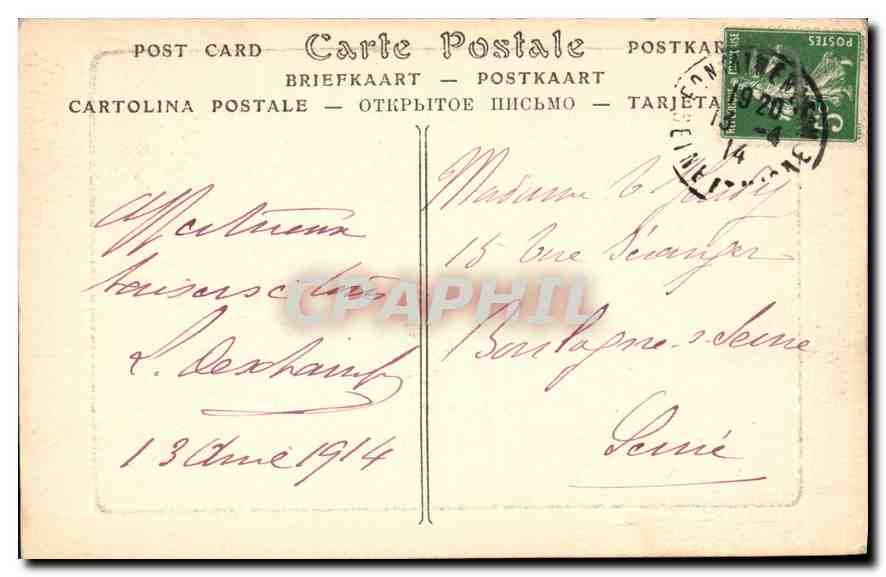 POST CARD Carte Postale POSTKAR
BRIEFKAART — POSTKAART
CARTOLINA POSTALE — ОТКРЫТОЕ ПИСЬМО — TARJETA
POSTES
19-20
-4
14
Affectueux
baisers
L. Deschamps
13 Avril 1914
Madame
15 rue Béranger
Boulogne s. Seine
Seine
CPAPHIL